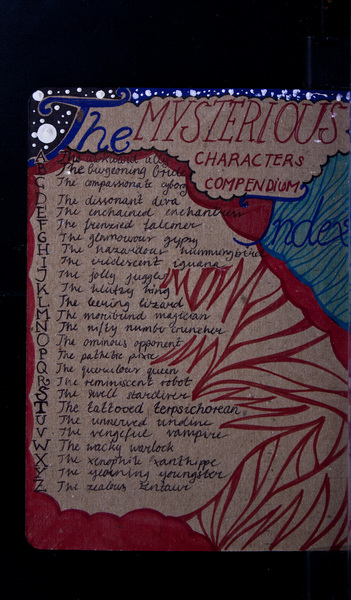 The MYSTERIOUS
CHARACTERS
COMPENDIUM
Index
A The awkward
B The burgeoning bride
C The compassionate cyborg
D The dissonant diva
E The enchained enchantress
F The frenzied
G The glamourous gypsy
H The hazardous hummingbird
I The iridescent iguana
J The jolly juggler
K The klutzy king
L The leering lizard
M The moribund magician
N The nifty number cruncher
O The ominous opponent
P The pathetic pixie
Q The querulous queen
R The reminiscent robot
S The swell stardiver
T The tattooed terpsichorean
U The unnerved undine
V The vengeful vampire
W The wacky warlock
X The xenophile xanthippe
Y The yearning youngster
Z The zealous zentaur